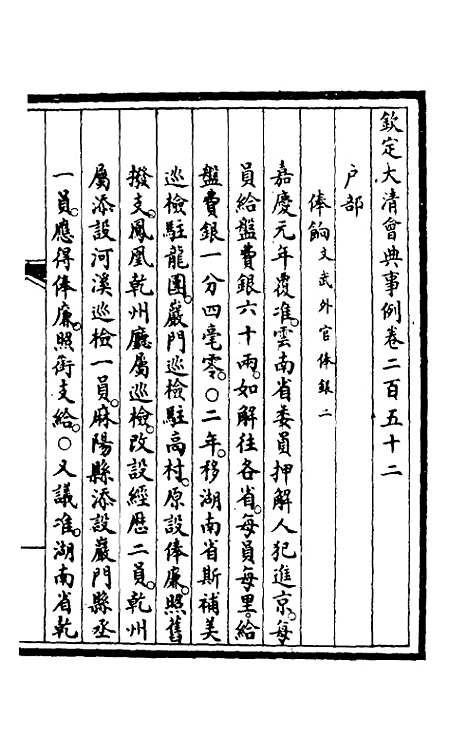 欽定大清會典事例卷二百五十二
戶部
俸餉文武外官俸銀二
嘉慶元年覆准。雲南省委員押解人犯進京。每
員給盤費銀六十兩。如解往各省。每員每里。給
盤費銀一分四毫零。○二年。移湖南省斯補美
巡檢駐龍團。巖門巡檢駐高村。原設俸廉。照舊
撥支。鳳凰乾州廳屬巡檢。改設經歷二員。乾州
屬添設河溪巡檢一員。麻陽縣添設巖門縣丞
一員。應得俸廉。照銜支給。○又議准。湖南省乾